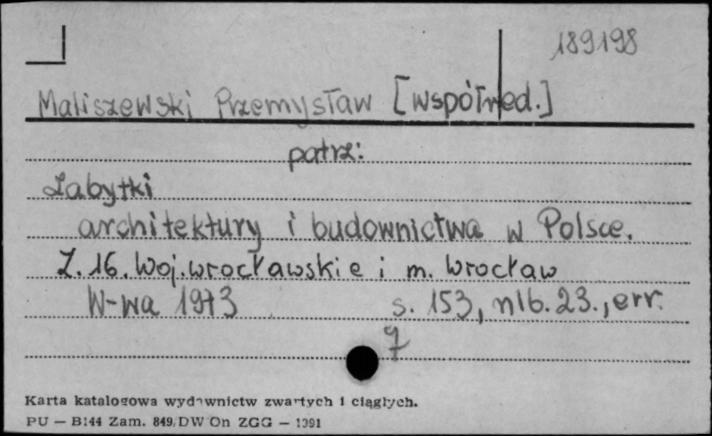 189198
Maliszewski Przemysław [współred.]
patrz:
Zabytki
architektury i budownictwa w Polsce.
Z. 16. Woj. wrocławskie i m. Wrocław
W-wa 1973 s. 153, nlb. 23., err.
Karta katalogowa wydawnictw zwartych i ciągłych.
PU — B144 Zam. 849/DW On ZGG — 1391